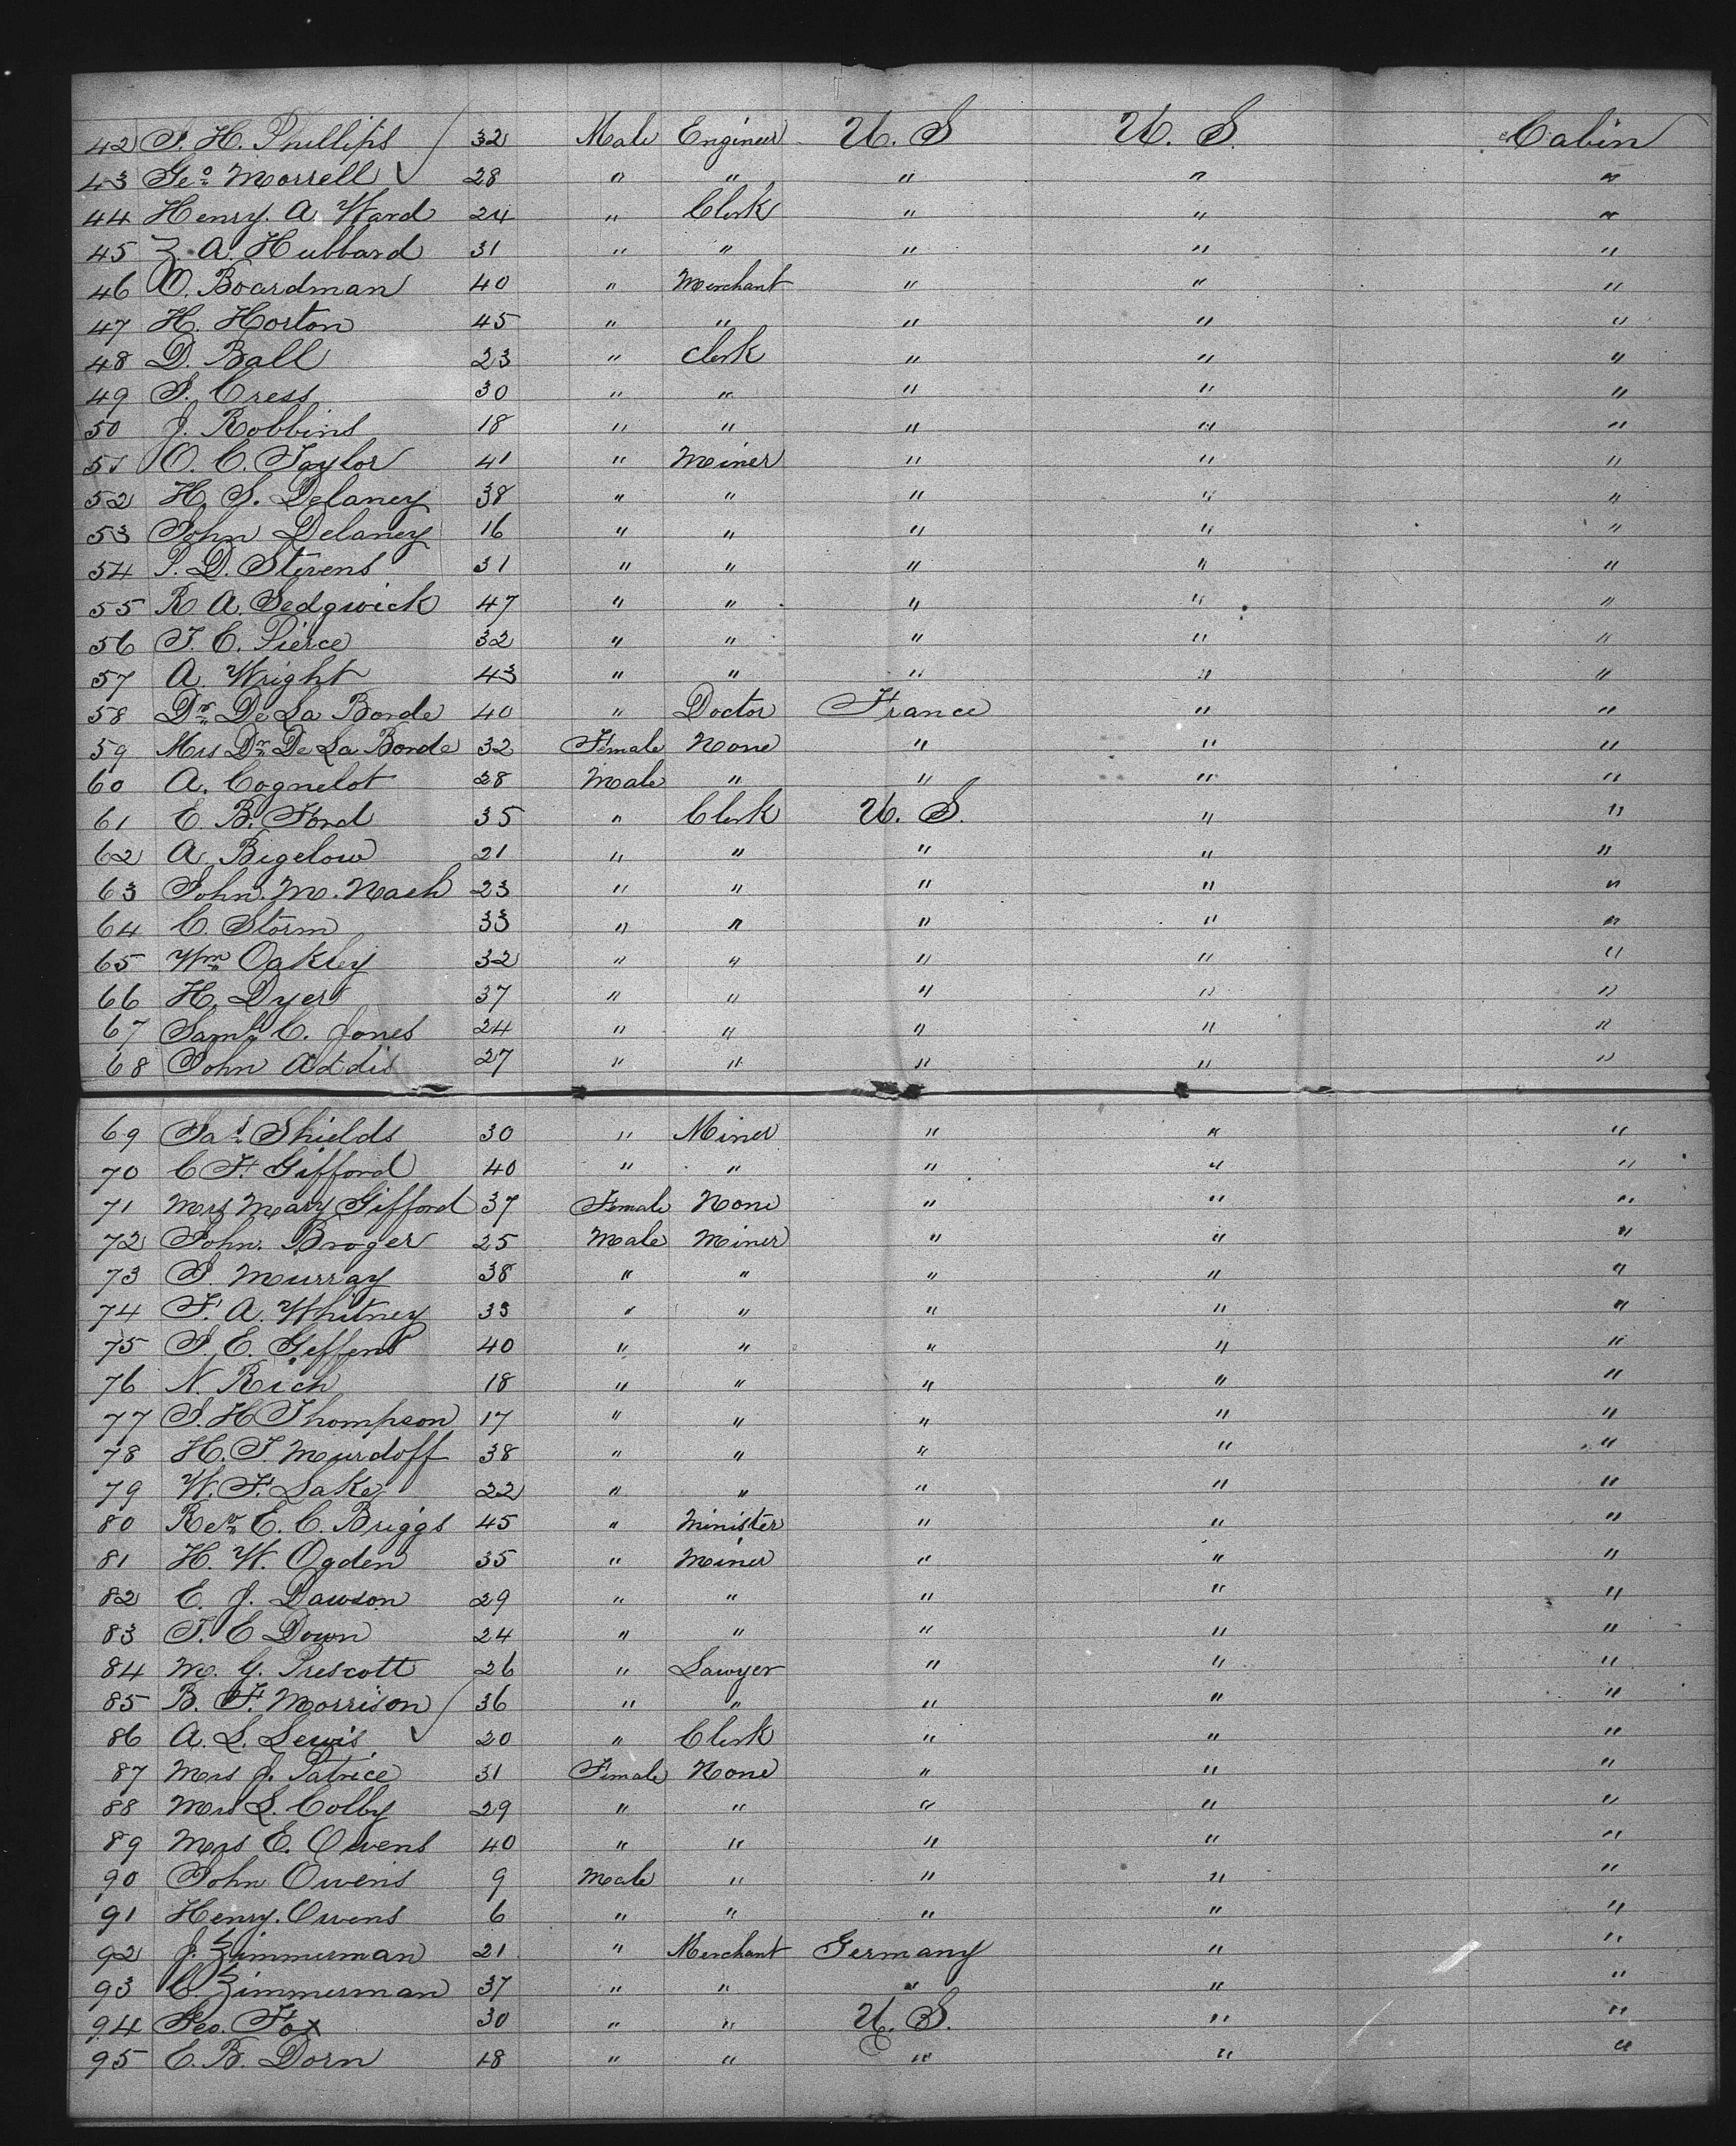 42 J. H. Phillips 32 Male Engineer U. S U. S. Cabin
43 Geo Morrell 28 " " " " "
44 Henry. A. Ward 24 " Clerk " " "
45 Z. A. Hubbard 31 " " " " "
46 O. Boardman 40 " Merchant " " "
47 H. Horton 45 " " " " "
48 D. Ball 23 " Clerk " " "
49 S. Cress 30 " " " " "
50 J. Robbins 18 " " " " "
51 O. C. Taylor 41 " Miner " " "
52 H. S. Delaney 38 " " " " "
53 John Delaney 16 " " " " "
54 P. D. Stevens 31 " " " " "
55 R A. Sedgwick 47 " " " " "
56 T. E. Pierce 32 " " " " "
57 A. Wright 43 " " " " "
58 Dr De La Borde 40 " Doctor France " "
59 Mrs Dr De La Borde 32 Female None " " "
60 A. Cognelot 28 Male " " " "
61 E. B. Ford 35 " Clerk U. S. " "
62 A. Bigelow 21 " " " " "
63 John. M. Nash 23 " " " " "
64 C. Storm 33 " " " " "
65 Wm Oakley 32 " " " " "
66 H. Dyer 37 " " " " "
67 Saml C. Jones 24 " " " " "
68 John Addis 27 " " " " "
69 Jas Shields 30 " Miner " " "
70 C F. Gifford 40 " " " " "
71 Mrs Mary Gifford 37 Female None " " "
72 John. Broger 25 Male Miner " " "
73 J. Murray 38 " " " " "
74 F. A. Whitney 33 " " " " "
75 J. E. Geffens 40 " " " " "
76 N. Rich 18 " " " " "
77 J. H Thompson 17 " " " " "
78 H. T. Murdoff 38 " " " " "
79 W. F. Lake 22 " " " " "
80 Rev E. C. Briggs 45 " Minister " " "
81 H. W. Ogden 35 " Miner " " "
82 E. J. Dawson 29 " " " " "
83 T. E Down 24 " " " " "
84 M. G. Prescott 26 " Lawyer " " "
85 B. F. Morrison 36 " " " " "
86 A. L. Lewis 20 " Clerk " " "
87 Mrs J. Patrice 31 Female None " " "
88 Mrs L. Colby 29 " " " " "
89 Mrs E. Owens 40 " " " " "
90 John Owens 9 Male " " " "
91 Henry. Owens 6 " " " " "
92 J. Zimmerman 21 " Merchant Germany " "
93 C. Zimmerman 37 " " " " "
94 Geo. Fox 30 " " U. S. " "
95 E. B. Dorn 18 " " " " "